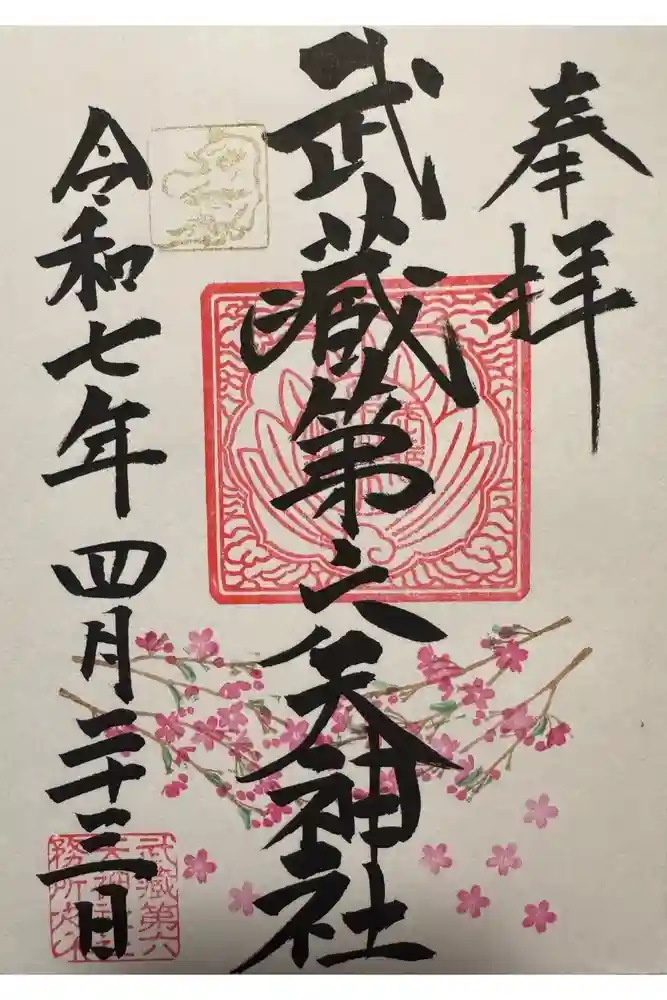 奉拝
武蔵第六天神社
令和七年四月二十三日
武蔵第六
天神社社
務所之印